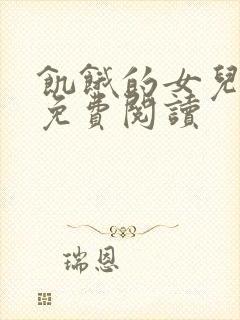 飢餓的女兒
免費閱讀
瑞恩